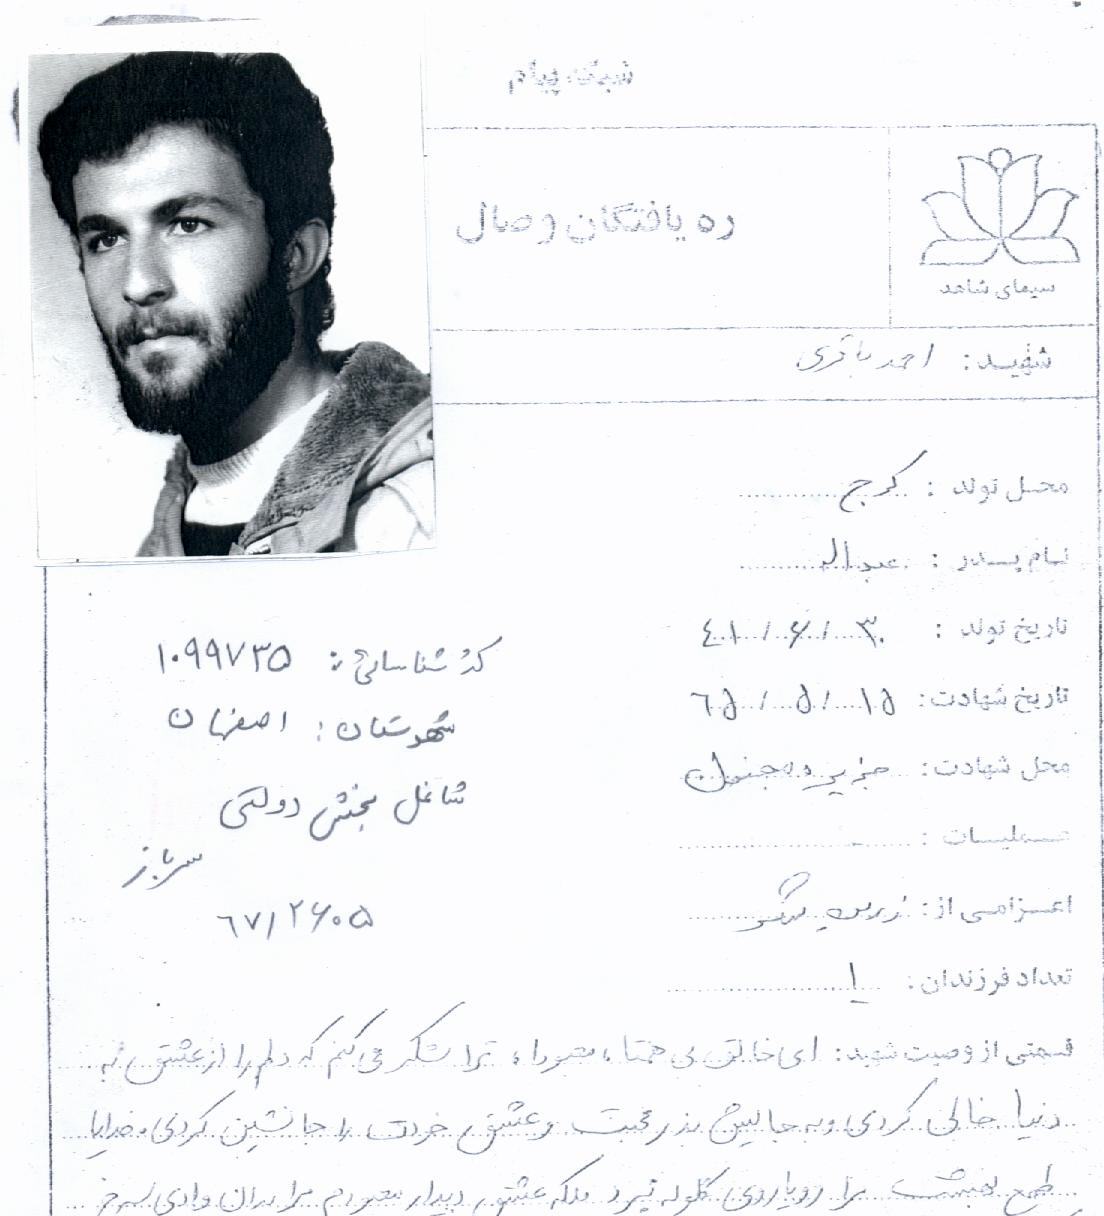 شبکه پیام
ره یافتگان وصال
سیمای شاهد
شهید: احمد باقری
محل تولد: کرج
نام پدر: عبداله
تاریخ تولد: ۳۰/۶/۴۱
تاریخ شهادت: ۱۵/۵/۶۵
محل شهادت: جزیره مجنون
عملیات:
اعزامی از:
تعداد فرزندان: ۱
کد شناسائی: ۱۰۹۹۷۳۵
شهرستان: اصفهان
شاغل بخش دولتی
سرباز
۶۷/۲۶۰۵
قسمتی از وصیت شهید: ای خالق بی همتا، معبودا، ترا شکر می کنم که دلم را از عشق به
دنیا خالی کردی و به جایش بذر محبت و عشق خودت را جانشین کردی. خدایا
طمع بهشت مرا رویاروی گلوله نبرد بلکه عشق دیدار معبودم مرا بدان وادی